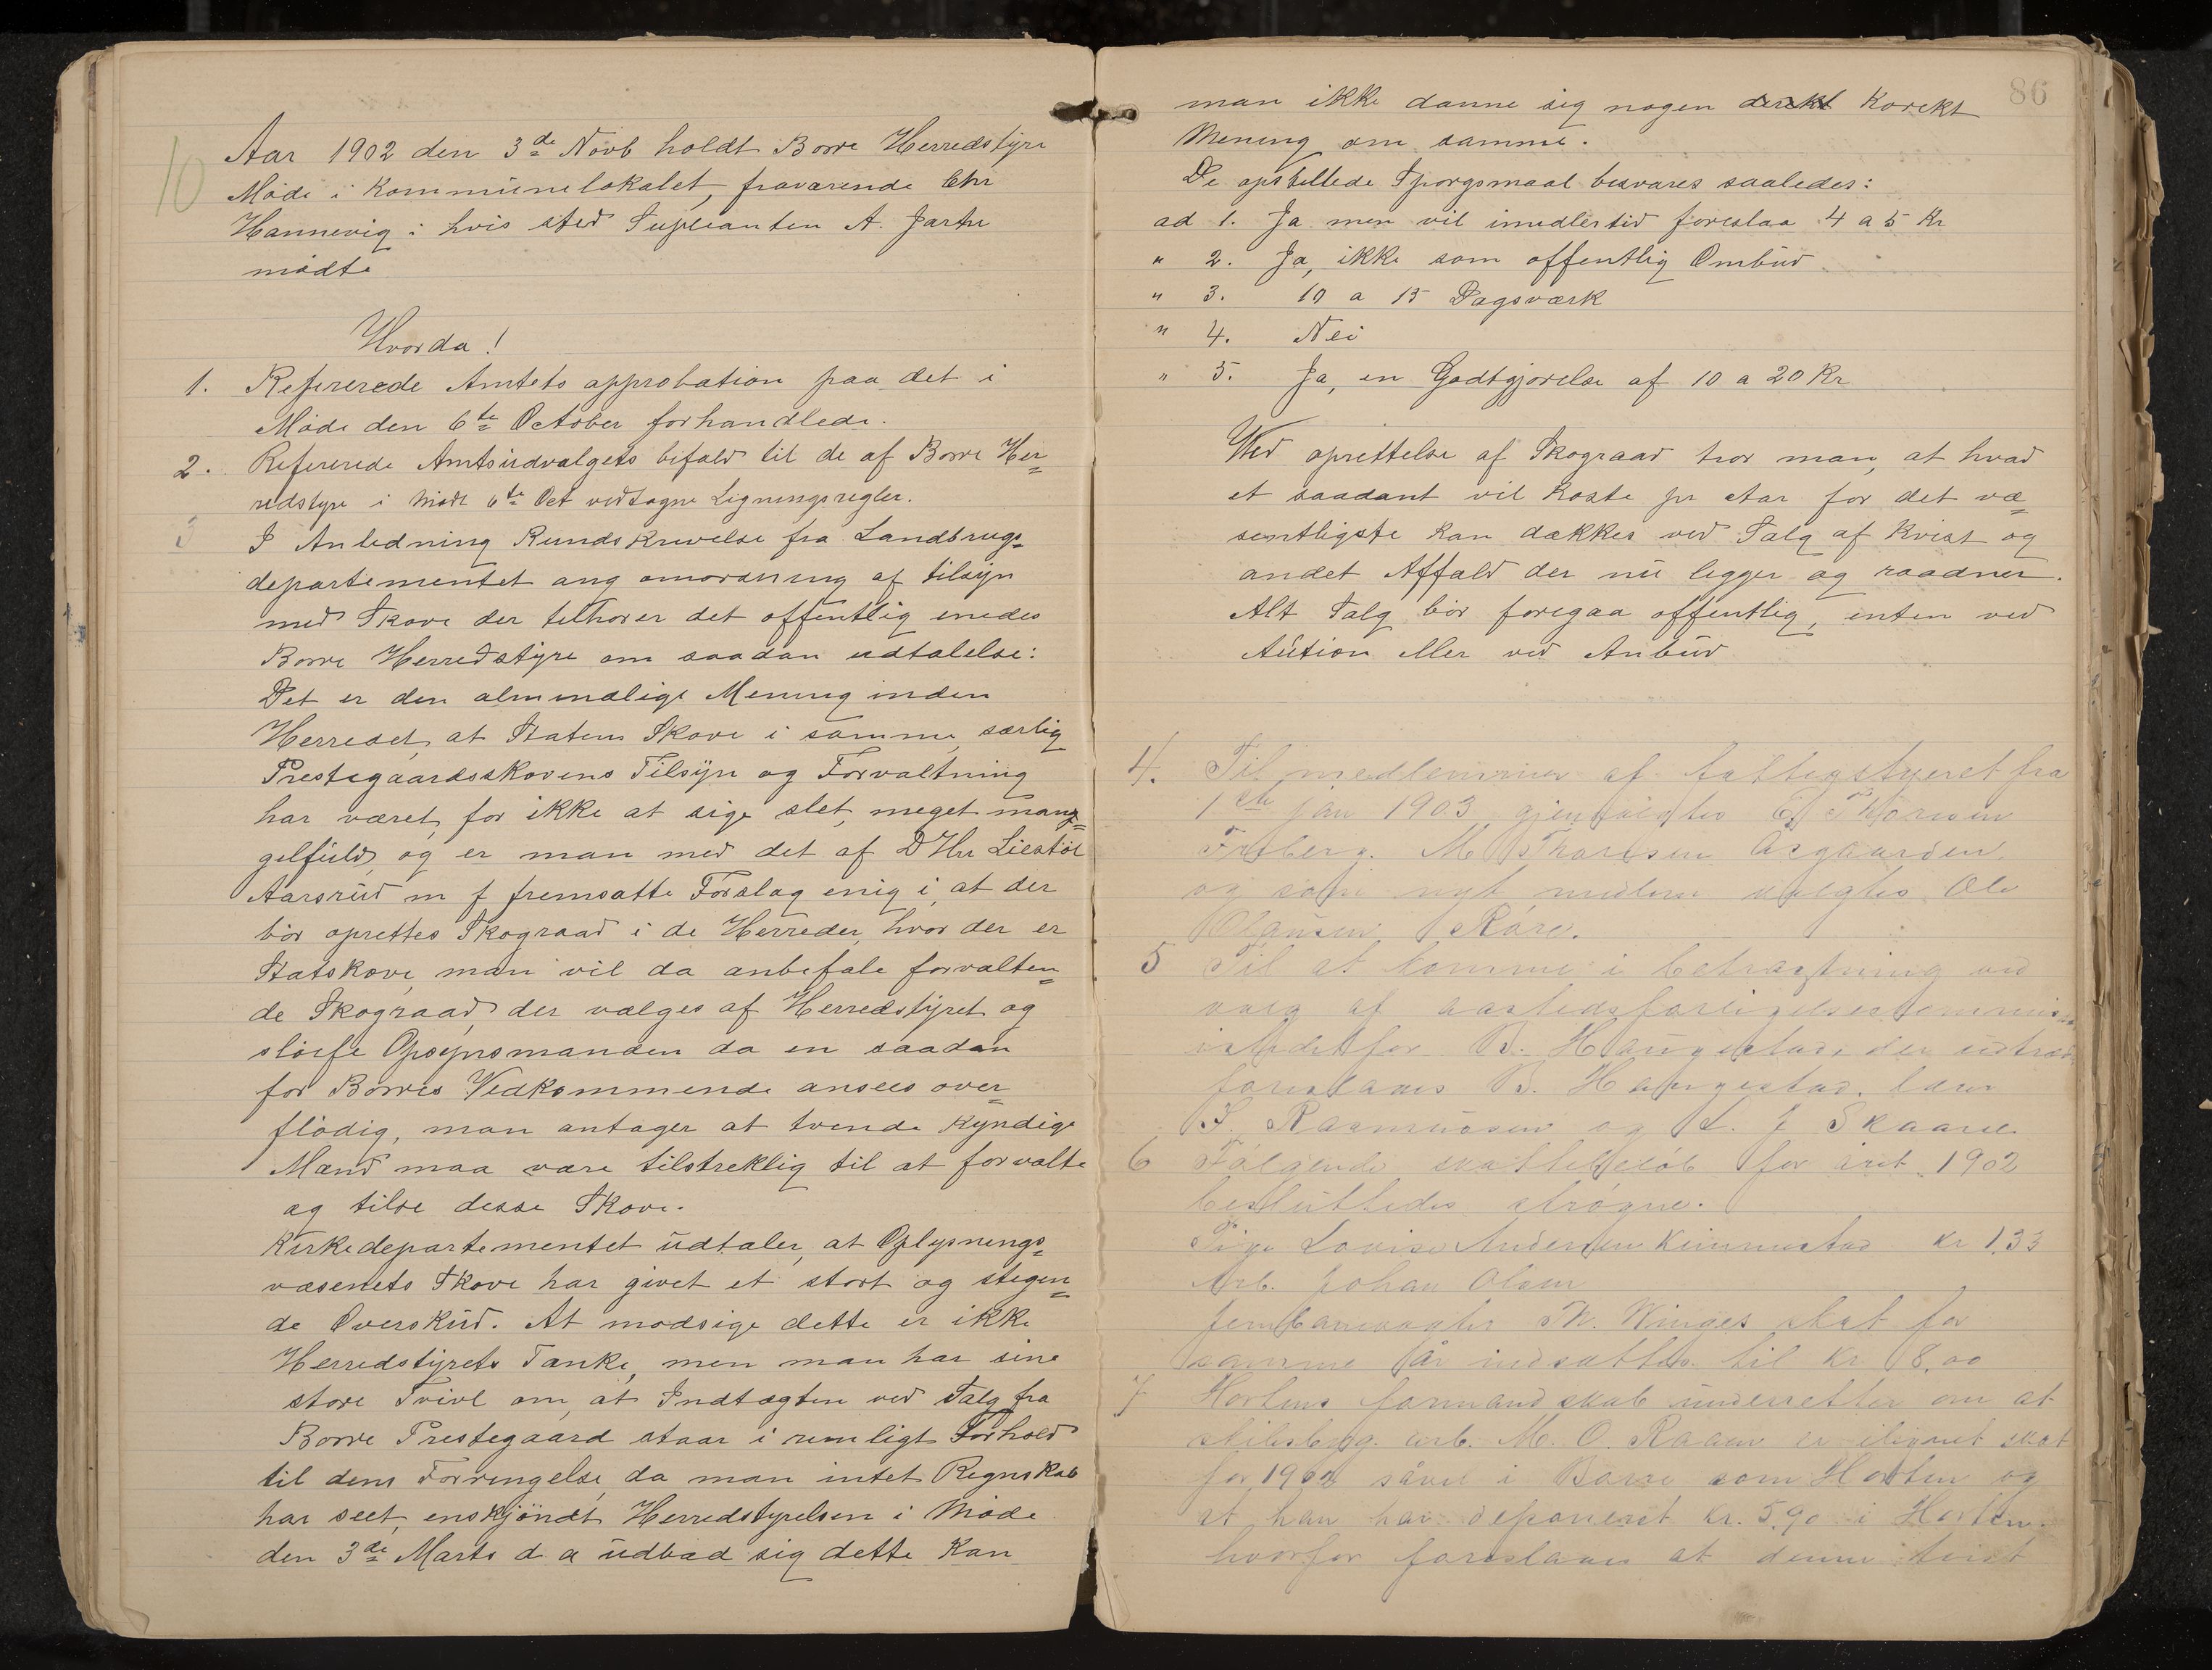 10
Aar 1902 den 3de Novb holdt Borre Herredstyre
Møde i Kommunelokalet, fraværende Chr
Hannevig i hvis sted Supleanten A. Jartu
mødte
Hvorda!
1. Refererede Amtets approbation paa det i
Møde den 6te October forhandlede.
2. Refererede Amtsudvalgets bifald til de af Borre Her=
redstyre i Møde 6te Oct vedtagne Ligningsregler.
3 I Anledning Rundskrivelse fra Landbrugs=
departementet ang omordning af tilsyn
med Skove der tilhører det offentlig enedes
Borre Herredstyre om saadan udtalelse:
Det er den almindelige Mening inden
Herredet, at Statens Skove i samme, særlig
Prestegaardsskovens Tilsyn og Forvaltning
har været, for ikke at sige slet, meget mang=
gelfuld, og er man med det af D'Hrr Liestøl
Aarsrud m f fremsatte Forslag enig i, at der
bør oprettes Skograad i de Herreder, hvor der er
Statskove, man vil da anbefale forvalten=
de Skograad, der vælges af Herredstyret og
sløife Opsynsmanden da en saadan
for Borres Vedkommende ansees over=
flødig, man antager at tvende kyndige
Mænd maa være tilstreklig til at forvalte
og tilse desse Skove.
Kirkedepartementet udtaler, at Oplysnings=
væsenets Skove har givet et stort og stegen=
de Overskud. At modsige dette er ikke
Herredstyrets Tanke, men man har sine
store Tvivl om, at Indtægten ved Salg fra
Borre Prestegaard staar i rimeligt Forhold
til dens Forringelse, da man intet Regnskab
har seet, enskjøndt Herredstyrelsen i Møde
den 3de Marts d a udbad sig dette Kan
86
man ikke danne sig nogen derekt korekt
Mening om samme.
De opstillede Spørgsmaal besvares saaledes:
ad 1. Ja men vil imedlertid foreslaa 4 a 5 Kr
" 2. Ja, ikke som offentlig Ombud
" 3. 10 a 15 Dagsværk
" 4. Nei
" 5. Ja, en Godtgjørelse af 10 a 20 Kr
Ved oprettelse af Skograad tror man, at hvad
et saadant vil koste pr Aar for det væ=
sentligste kan dækkes ved Salg af Kvist og
andet Affald der nu ligger og raadner.
Alt Salg bør foregaa offentlig, enten ved
Aution eller ved Anbud
4. Til medlemmer af fattigstyeret fra
1ste Jan 1903 gjenvalgtes E. Thorsen
Froberg. M. Thoresen Asgaarden.
og som nyt medlem valgtes Ole
Olausen Røre.
5 Til at komme i betragtning ved
valg af aastedsforligelseskommis
istedetfor B. Haugestad, der udtræd
foreslaaes B. Haugestad, lærer
S. Rasmussen og L. J Skaane
6 Følgende skattebeløb for året 1902
besluttedes strøgne.
Pige Lovise Andersen Kimmestad kr 1.33
Arb. Johan Olsen
Jernbanevogter Th. Winges skat for
samme år nedsattes til kr 8.00
7 Hortens formandskab underretter om at
arb. M. O. Raaen er ilignet skat
for 1902 såvel i Borre som Horten og
at han har deponeret kr. 5.90 i Horten.
hvorfor foreslaaes at denne tvist